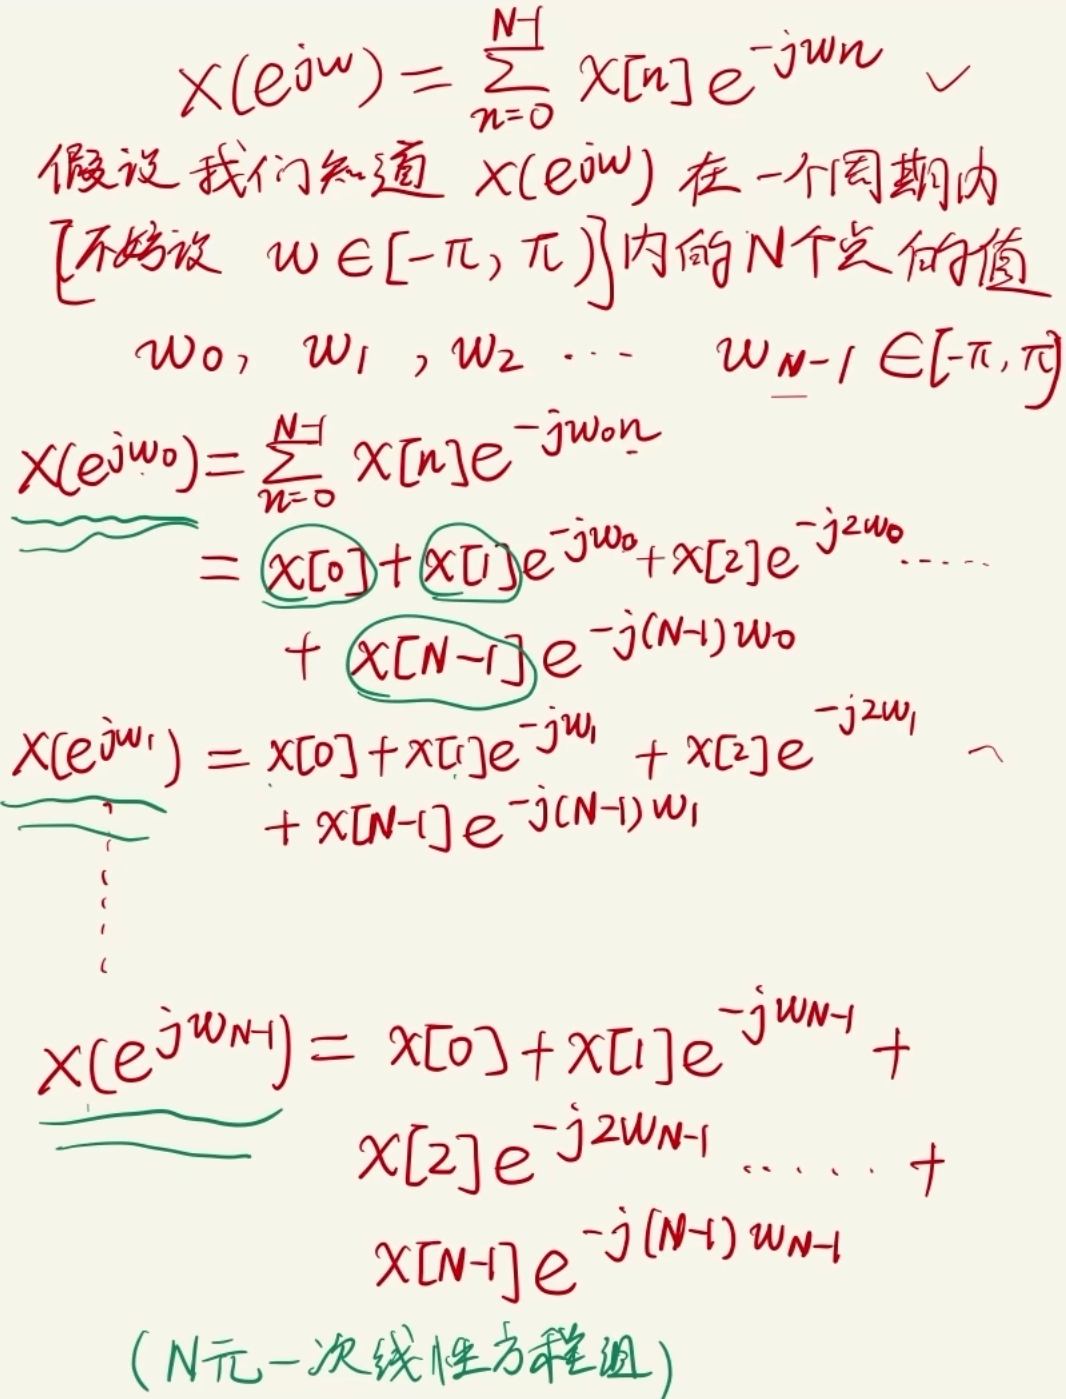 X(e^{jω}) = \sum_{n=0}^{N-1} x[n] e^{-jωn} ✓
假设我们知道 X(e^{jω}) 在一个周期内
[不妨设 ω ∈ [-π, π)] 内的N个点的值
ω_0, ω_1, ω_2 ··· ω_{N-1} ∈ [-π, π)
X(e^{jω_0}) = \sum_{n=0}^{N-1} x[n] e^{-jω_0n}
= x[0] + x[1] e^{-jω_0} + x[2] e^{-j2ω_0} ······
+ x[N-1] e^{-j(N-1)ω_0}
X(e^{jω_1}) = x[0] + x[1] e^{-jω_1} + x[2] e^{-j2ω_1} ~
+ x[N-1] e^{-j(N-1)ω_1}
X(e^{jω_{N-1}}) = x[0] + x[1] e^{-jω_{N-1}} +
x[2] e^{-j2ω_{N-1}} ······ +
x[N-1] e^{-j(N-1)ω_{N-1}}
(N元一次线性方程组)